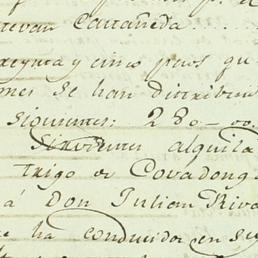 tevan Castañeda
treynta y cinco pesos qu
mes se han distribui
siguientes: 280-00.
Sirvientes alquila
trigo de Covadong
á Don Julian Riva
e ha conducido en su